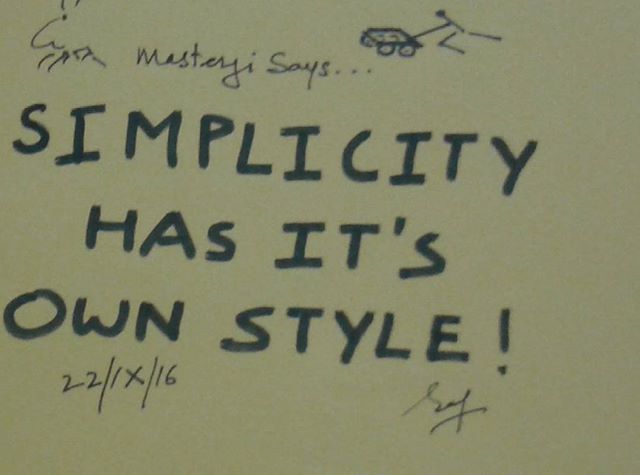 Masterji Says...
SIMPLICITY
HAS IT'S
OWN STYLE!
22/IX/16